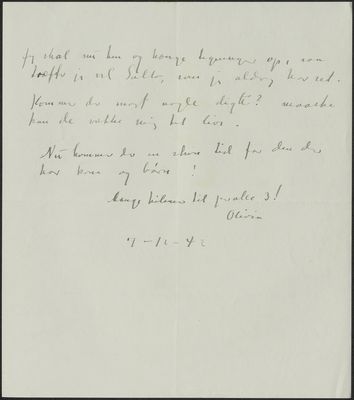 Jeg skal nu hen og hænge tegninger op, saa
træffer jeg vel Salto, som jeg aldrig har set.
Kommer der snart nogle digte? maaske
kan de vække mig til live.
Nu kommer der en store tid for den der
har kone og børn!
Mange hilsner til jer alle 3!
Olivia
7-12-42